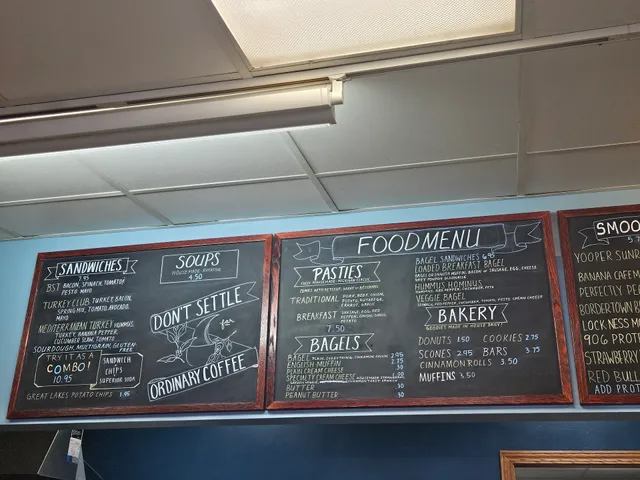 SANDWICHES
7.95
BST BACON, SPINACH, TOMATO
PESTO MAYO
TURKEY CLUB TURKEY, BACON,
SPRING MIX, TOMATO, AVOCADO,
MAYO
MEDITERRANEAN TURKEY HUMMUS,
TURKEY, BANANA PEPPER,
CUCUMBER, TOMATO
SOURDOUGH, MULTIGRAIN, GLUTEN FREE
TRY IT AS A
COMBO!
10.95
SANDWICH
CHIPS
SUPERIOR SODA
GREAT LAKES POTATO CHIPS 1.95
SOUPS
HOUSE MADE
4.50
DON'T SETTLE
for
ORDINARY COFFEE
FOOD MENU
PASTIES
TRADITIONAL PORK, BEEF, ONION,
POTATO, RUTABAGA,
CARROT, GARLIC
BREAKFAST SAUSAGE, EGG, RED
PEPPER, ONION,
POTATO, CHEESE
7.50
BAGELS
BAGEL 2.95
ENGLISH MUFFIN 2.95
PLAIN CREAM CHEESE
SPECIALTY CREAM CHEESE
BUTTER .30
PEANUT BUTTER .30
BAGEL SANDWICHES 6.95
LOADED BREAKFAST BAGEL
HUMMUS HOMINUS
VEGGIE BAGEL
BAKERY
GOODIES MADE IN HOUSE DAILY
DONUTS 1.50 COOKIES 2.75
SCONES 2.95 BARS 3.75
CINNAMON ROLLS 3.50
MUFFINS 3.50
SMOO
YOOPER SUNR
BANANA CAFFEIN
PERFECTLY PE
BORDERTOWN B
LOCK NESS M
90G PROT
STRAWBERRY
RED BULL
ADD PROT